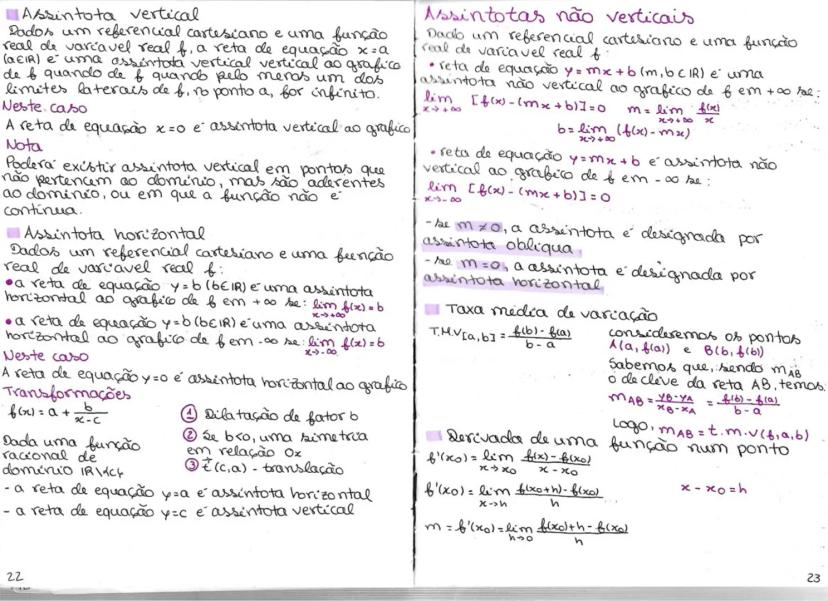 Assintota vertical
Dados um referencial cartesiano e uma função
real de variável real f, a reta de equação x=a
(a∈IR) é uma assintota vertical vertical ao gráfico
de f quando de f quando pelo menos um dos
limites laterais de f, no ponto a, for infinito.
Neste caso
A reta de equação x=0 é assintota vertical ao gráfico
Nota
Poderá existir assintota vertical em pontos que
não pertencem ao domínio, mas são aderentes
ao domínio, ou em que a função não é
contínua.
Assintota horizontal
Dados um referencial cartesiano e uma função
real de variável real f:
• a reta de equação y=b (b∈IR) é uma assintota
horizontal ao gráfico de f em +∞ se: lim f(x)=b
x→+∞
• a reta de equação y=b (b∈IR) é uma assintota
horizontal ao gráfico de f em -∞ se: lim f(x)=b
x→-∞
Neste caso
A reta de equação y=0 é assintota horizontal ao gráfico
Transformações
f(x) = a + b/(x-c)
① Dilatação de fator b
② Se b<0, uma simetria
em relação Ox
③ t⃗(c,a) - translação
Dada uma função
racional de
domínio IR\{c},
- a reta de equação y=a é assintota horizontal
- a reta de equação y=c é assintota vertical
22
Assintotas não verticais
Dado um referencial cartesiano e uma função
real de variável real f:
• reta de equação y=mx+b (m,b∈IR) é uma
assintota não vertical ao gráfico de f em +∞ se:
lim [f(x)-(mx+b)]=0 m=lim f(x)/x
x→+∞ x→+∞
b=lim (f(x)-mx)
x→+∞
• reta de equação y=mx+b é assintota não
vertical ao gráfico de f em -∞ se:
lim [f(x)-(mx+b)]=0
x→-∞
- se m≠0, a assintota é designada por
assintota oblíqua
- se m=0, a assintota é designada por
assintota horizontal
Taxa média de variação
T.M.V[a,b] = (f(b)-f(a))/(b-a)
consideremos os pontos
A(a,f(a)) e B(b,f(b))
Sabemos que, sendo mAB
o declive da reta AB, temos:
mAB = (yB-yA)/(xB-xA) = (f(b)-f(a))/(b-a)
Logo, mAB = t.m.v(f,a,b)
Derivada de uma função num ponto
f'(x0) = lim (f(x)-f(x0))/(x-x0)
x→x0
f'(x0) = lim (f(x0+h)-f(x0))/h x-x0=h
x→h
m = f'(x0) = lim (f(x0)+h-f(x0))/h
h→0
23